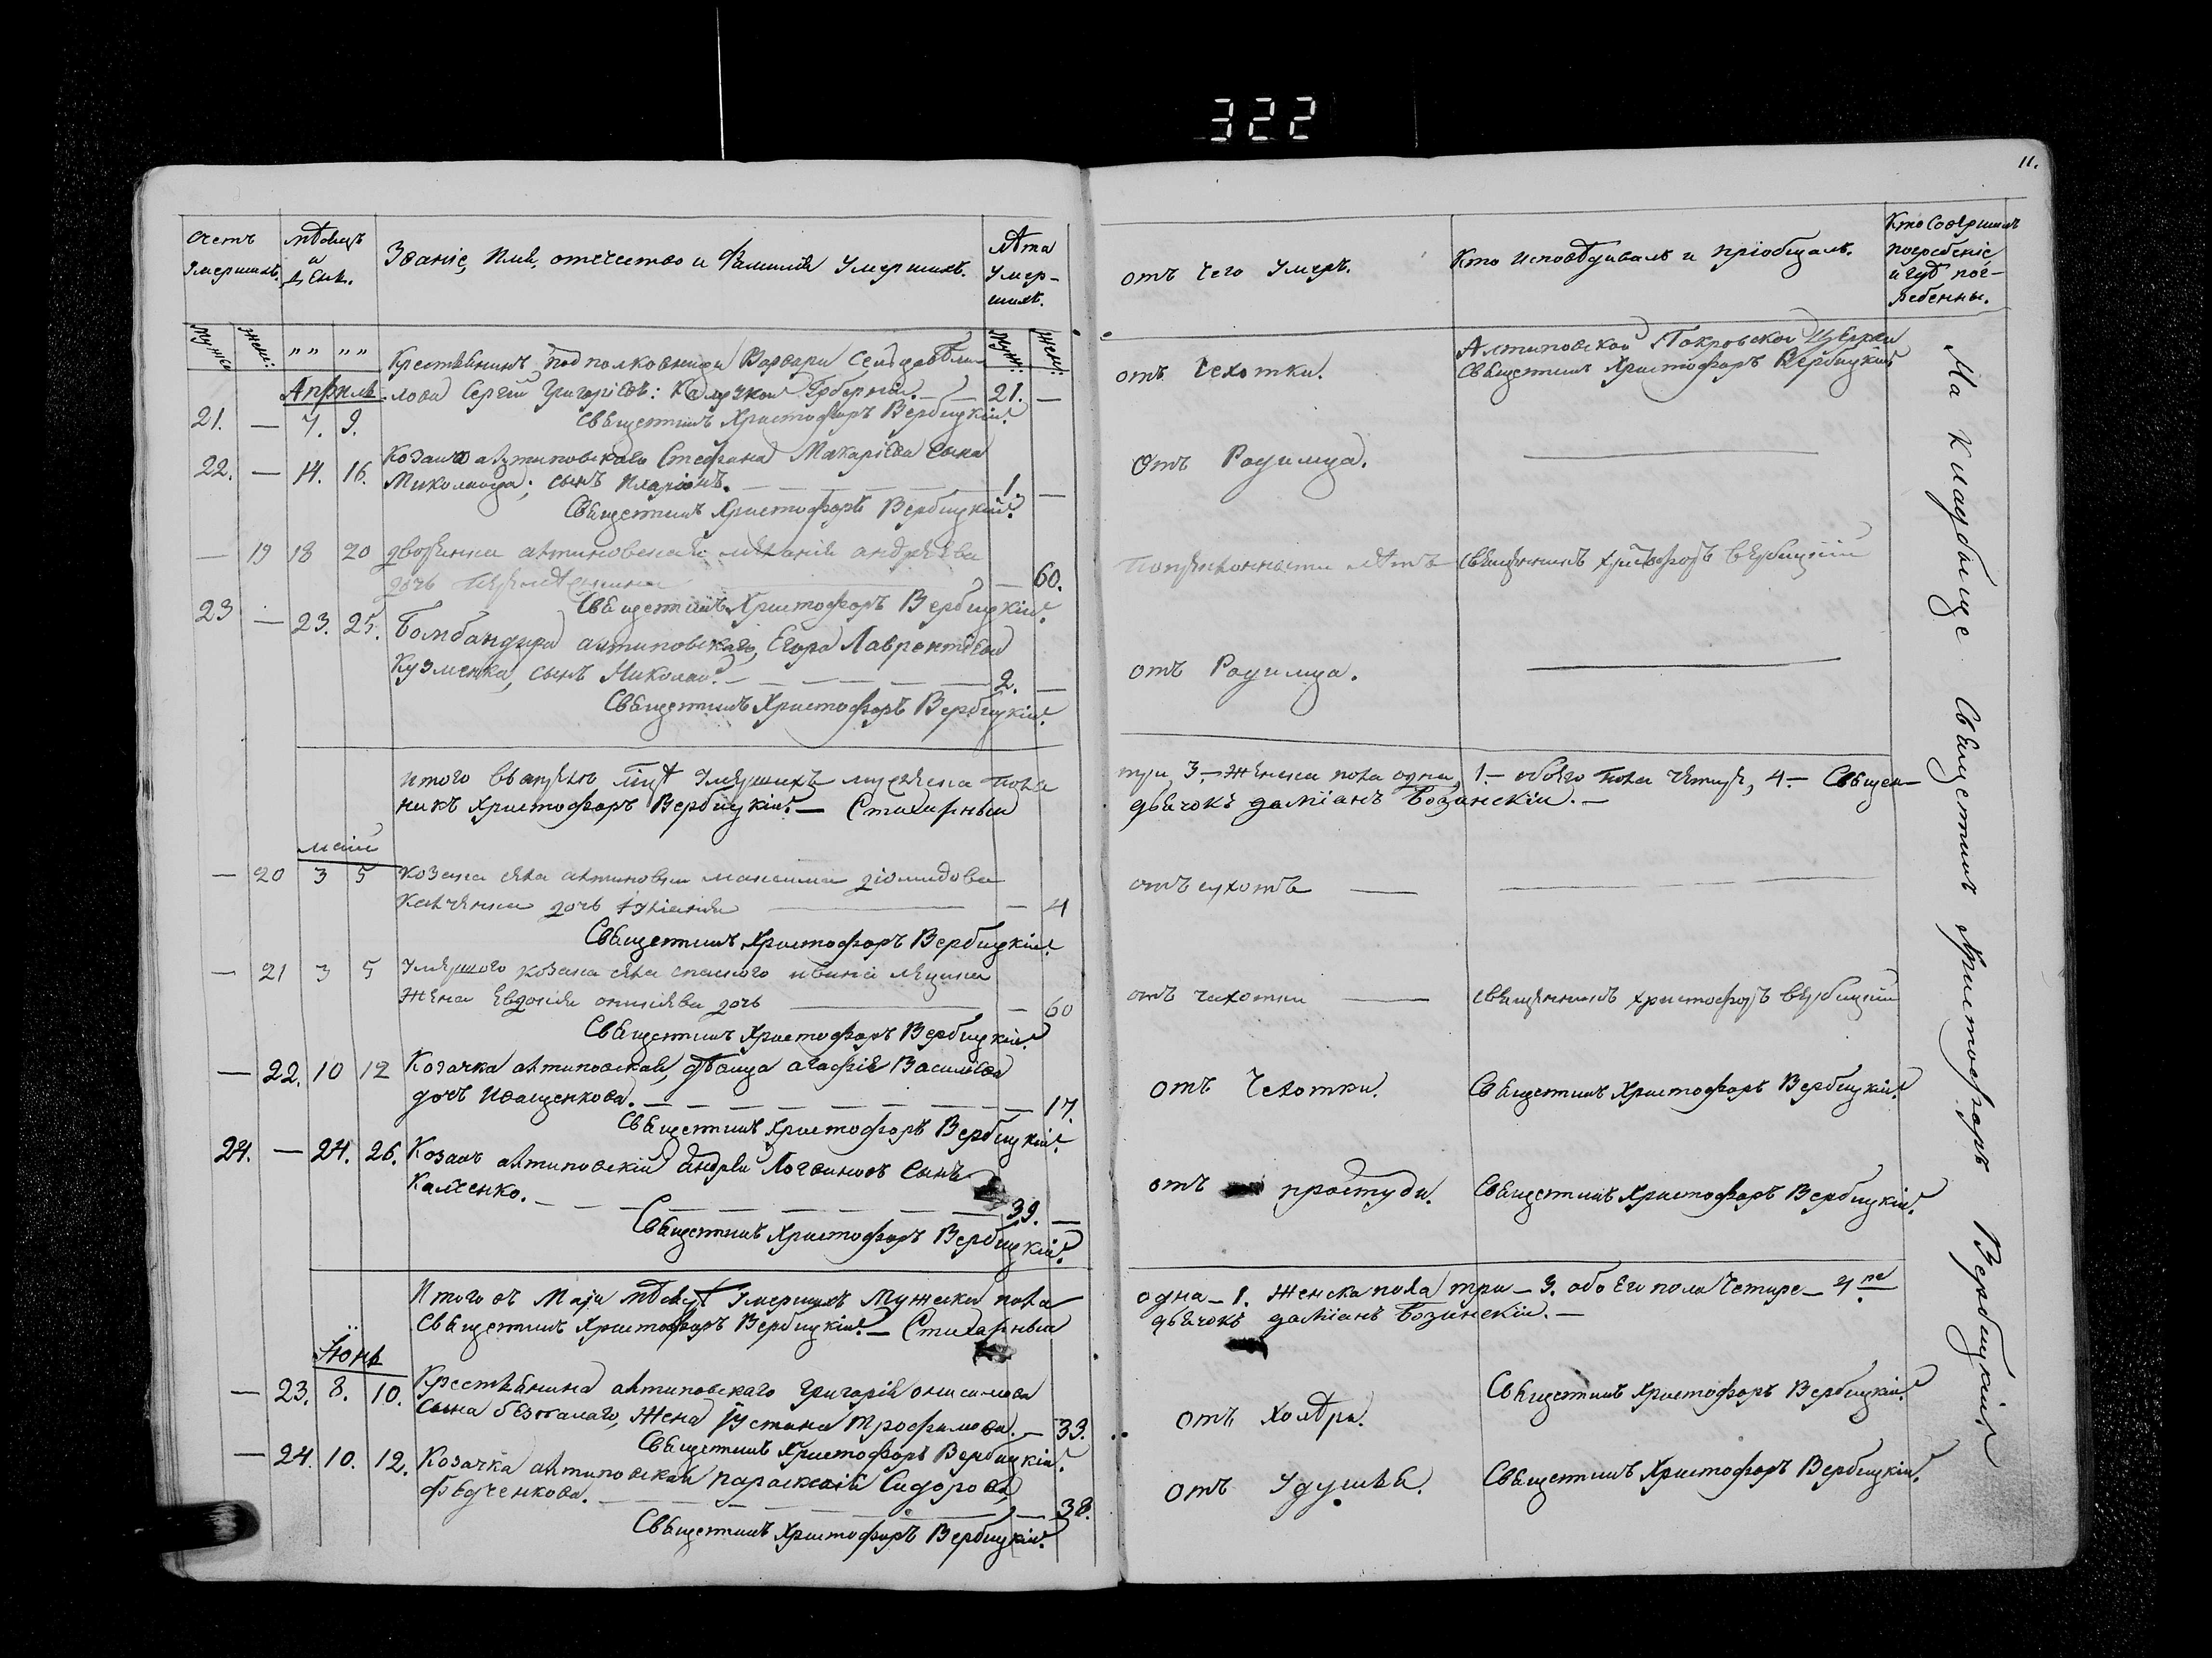 322
11.
Счетъ умершихъ.
Мѣсяцъ и день.
Званіе, Имя, отчество и Фамилія умершихъ.
Лѣта умер-
шихъ.
отъ чего умеръ.
Кто исповѣдывалъ и пріобщалъ.
Кто совершалъ
погребеніе
и гдѣ пог-
ребенны.
Муж: Жен: Муж: Жен:
Крестьянинъ подполковницы Варвары
Апрѣль
лова Сергій Григоріевъ: Калужской Губерніи. — 21. —
21. — 7. 9.
Священникъ Христофоръ Вербицкій.
отъ Чехотки.
Алтиновской Покровской Церкви
Священникъ Христофоръ Вербицкій
22. — 14. 16. Козака алтиновскаго Стефана Макаріева сына
сынъ Иларіонъ. — 1. —
Священникъ Христофоръ Вербицкій.
Отъ Родимца. —
— 19 18 20 дворянка алтиновская меланія андреева
дочь — 60.
Священникъ Христофоръ Вербицкій.
лѣтъ священникъ христофоръ вербицкій
23 — 23. 25. Бомбандира алтиновскаго, Егора Лаврентіева
Кузменка, сынъ Николай. — 2. —
Священникъ Христофоръ Вербицкій.
отъ Родимца. —
итого въ апрелѣ умершихъ мужеска пола
три, 3. — женска пола одна, 1. — обоего пола четыре, 4. — Священ-
никъ Христофоръ Вербицкій. — Стихарный
дьячокъ даміанъ Бозинскій. —
май
— 20 3 5 козака села алтиновки максима діомидова
дочь — 4
Священникъ Христофоръ Вербицкій.
отъ сухотъ —
— 21 3 5 умершого козака села спаского ивана
жена Евдокія дочь — 60
Священникъ Христофоръ Вербицкій.
отъ чахотки — священникъ христофоръ вербицкій
— 22. 10 12 Козачка алтиновская, дѣвица агафія Василіева
дочь Иващенкова. — 17.
Священникъ Христофоръ Вербицкій.
отъ Чехотки. Священникъ Христофоръ Вербицкій.
24. — 24. 26. Козакъ алтиновскій андрей Логвиновъ сынъ
Калченко. — 39. —
Священникъ Христофоръ Вербицкій.
отъ простуды. Священникъ Христофоръ Вербицкій.
Итого въ Маіи мѣсяцѣ умершихъ Мужеска пола
одна — 1. Женска пола три — 3. обоего пола четире — 4 ре
Священникъ Христофоръ Вербицкій. — Стихарный
дьячокъ даміанъ Бозинскій. —
Іюнь
— 23. 8. 10. Крестьянина алтиновскаго Григорія онисимова
сына безкалаго, жена Іустина Трофимова. — 33.
Священникъ Христофоръ Вербицкій.
отъ Холѣри. Священникъ Христофоръ Вербицкій.
— 24. 10. 12. Козачка алтиновская параскевія Сидорова
федченкова. — 38.
Священникъ Христофоръ Вербицкій.
отъ Удушья. Священникъ Христофоръ Вербицкій.
На кладбище Священникъ Христофоръ Вербицкій